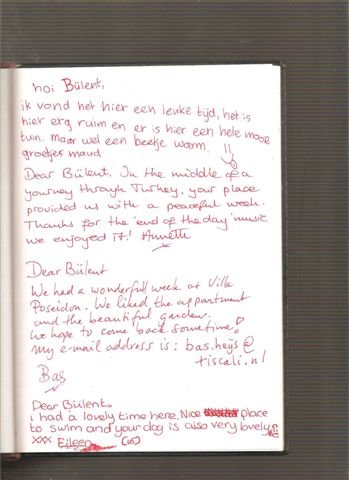 hoi Bülent,
ik vond het hier een leuke tijd, het is
hier erg ruim en er is hier een hele mooie
tuin. maar wel een beetje warm. !!
groetjes maud
Dear Bülent. In the middle of a
yourney through Turkey, your place
provided us with a peaceful week.
Thanks for the 'end of the day' music
we enjoyed it! Annette
Dear Bülent
We had a wonderfull week at Villa
Poseidon. We liked the appartment
and the beautiful garden.
We hope to come back sometime!
My e-mail address is: bas.heijs@
tiscali.nl
Bas
Dear Bülent.
I had a lovely time here. Nice place
to swim and your dog is also very lovely
xxx Eileen